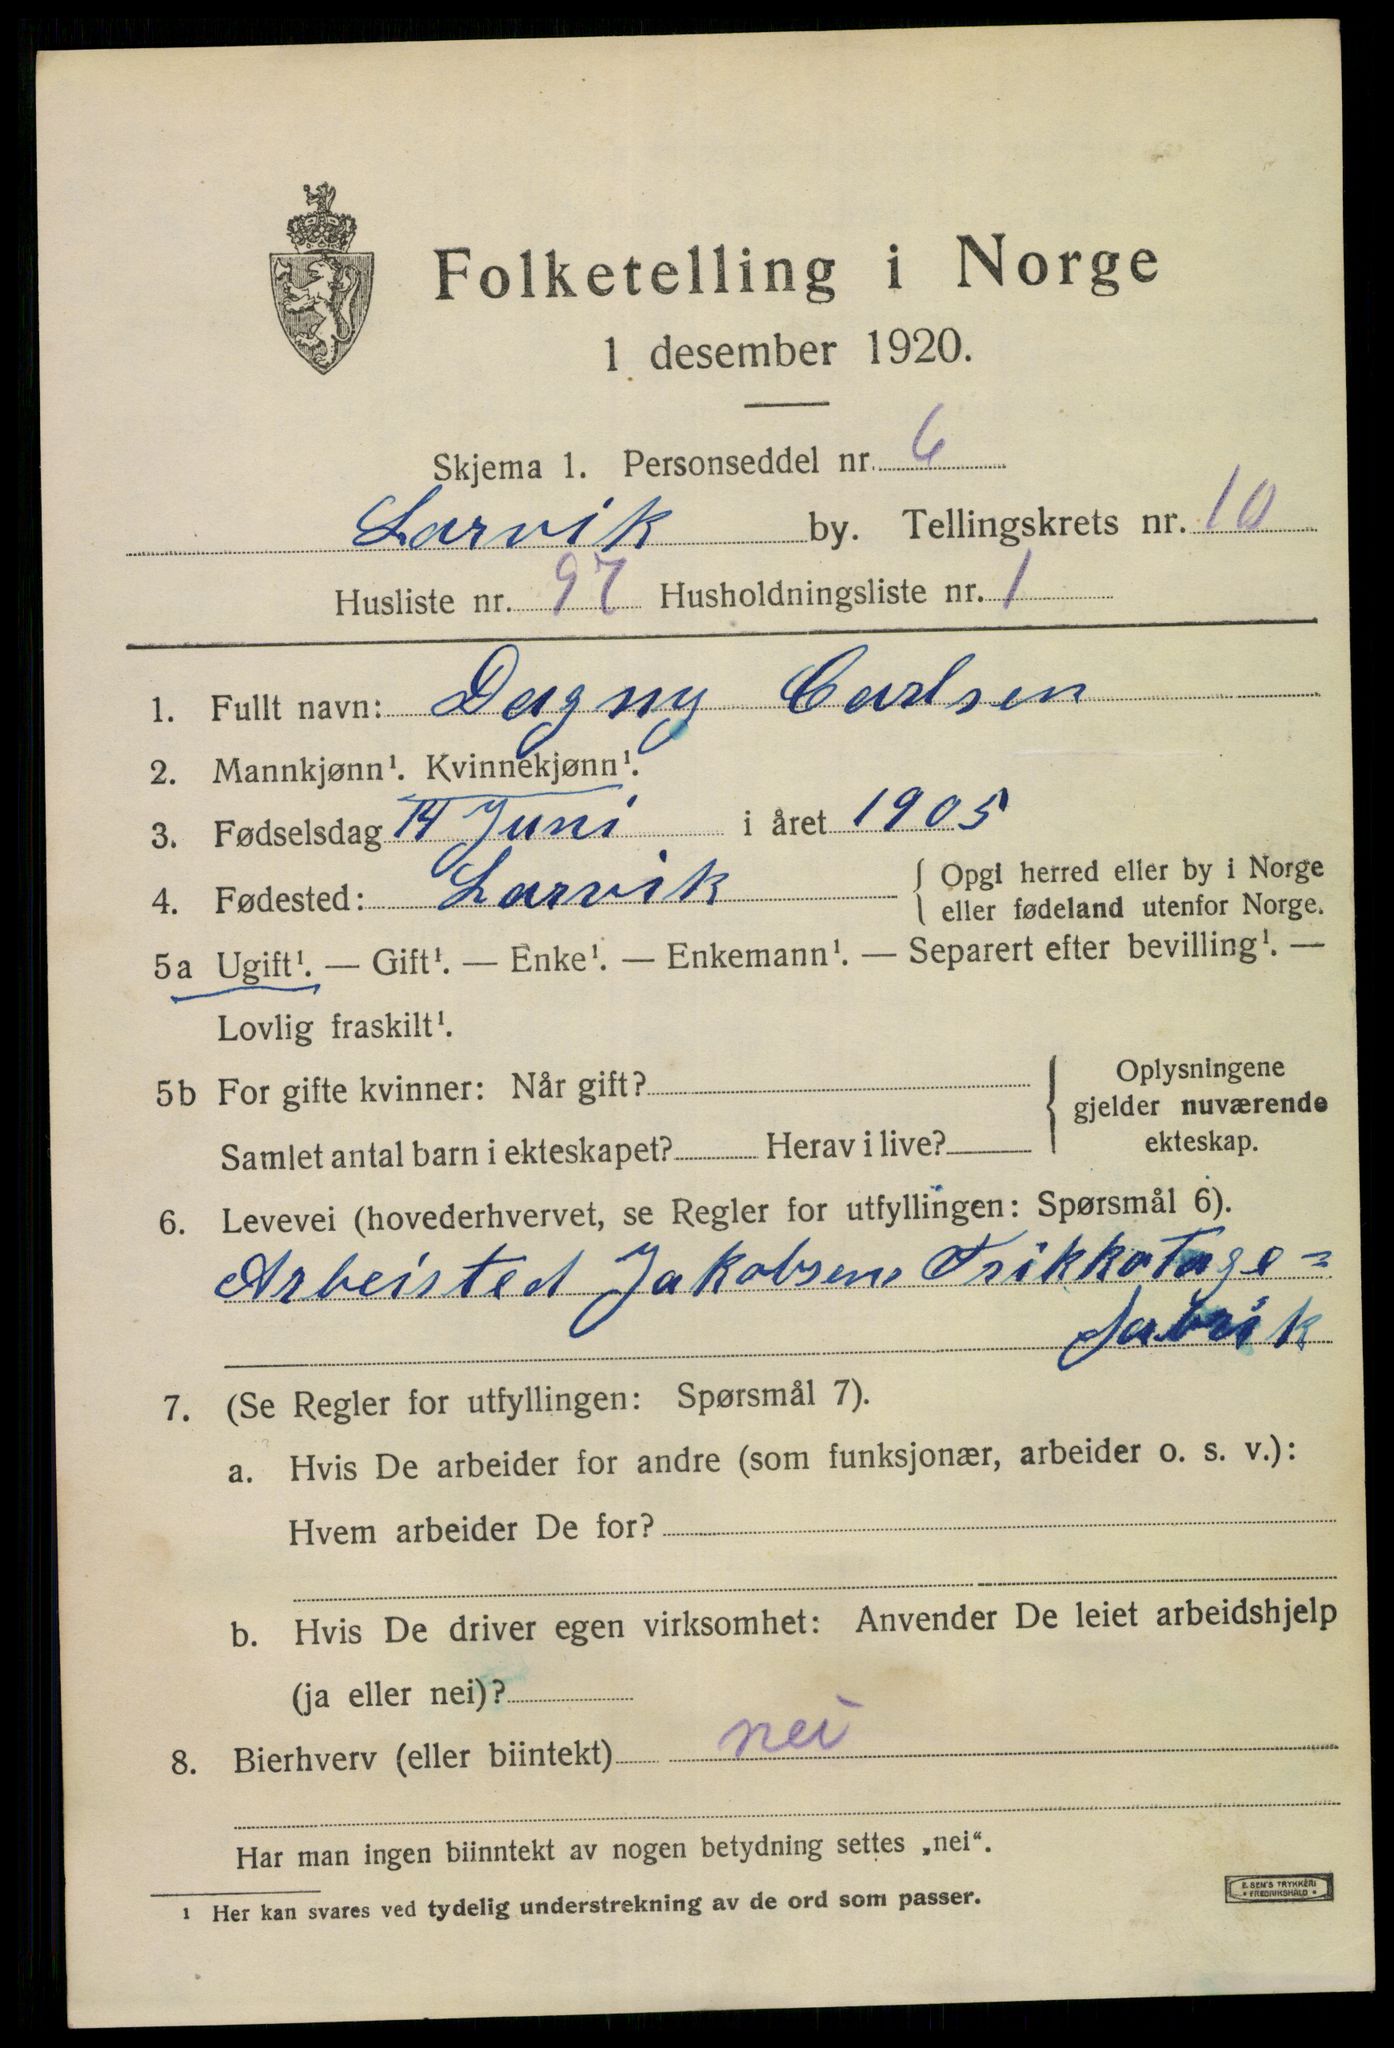 Folketelling i Norge
1 desember 1920.
Skjema 1. Personseddel nr. 6
Larvik by. Tellingskrets nr. 10
Husliste nr. 97 Husholdningsliste nr. 1
1. Fullt navn: Dagny Carlsen
2. Mannkjønn¹. Kvinnekjønn¹.
3. Fødselsdag 14 Juni i året 1905
4. Fødested: Larvik { Opgi herred eller by i Norge
eller fødeland utenfor Norge.
5a Ugift¹. — Gift¹. — Enke¹. — Enkemann¹. — Separert efter bevilling¹. —
Lovlig fraskilt¹.
5b For gifte kvinner: Når gift? { Oplysningene
gjelder nuværende
ekteskap.
Samlet antal barn i ekteskapet? Herav i live?
6. Levevei (hovederhvervet, se Regler for utfyllingen: Spørsmål 6).
Arbeisted Jakobsens Trikkotage=
fabrik
7. (Se Regler for utfyllingen: Spørsmål 7).
a. Hvis De arbeider for andre (som funksjonær, arbeider o. s. v.):
Hvem arbeider De for?
b. Hvis De driver egen virksomhet: Anvender De leiet arbeidshjelp
(ja eller nei)?
8. Bierhverv (eller biintekt) nei
Har man ingen biinntekt av nogen betydning settes „nei“.
¹ Her kan svares ved tydelig understrekning av de ord som passer.
E. SEM'S TRYKKERI
FREDRIKSHALD